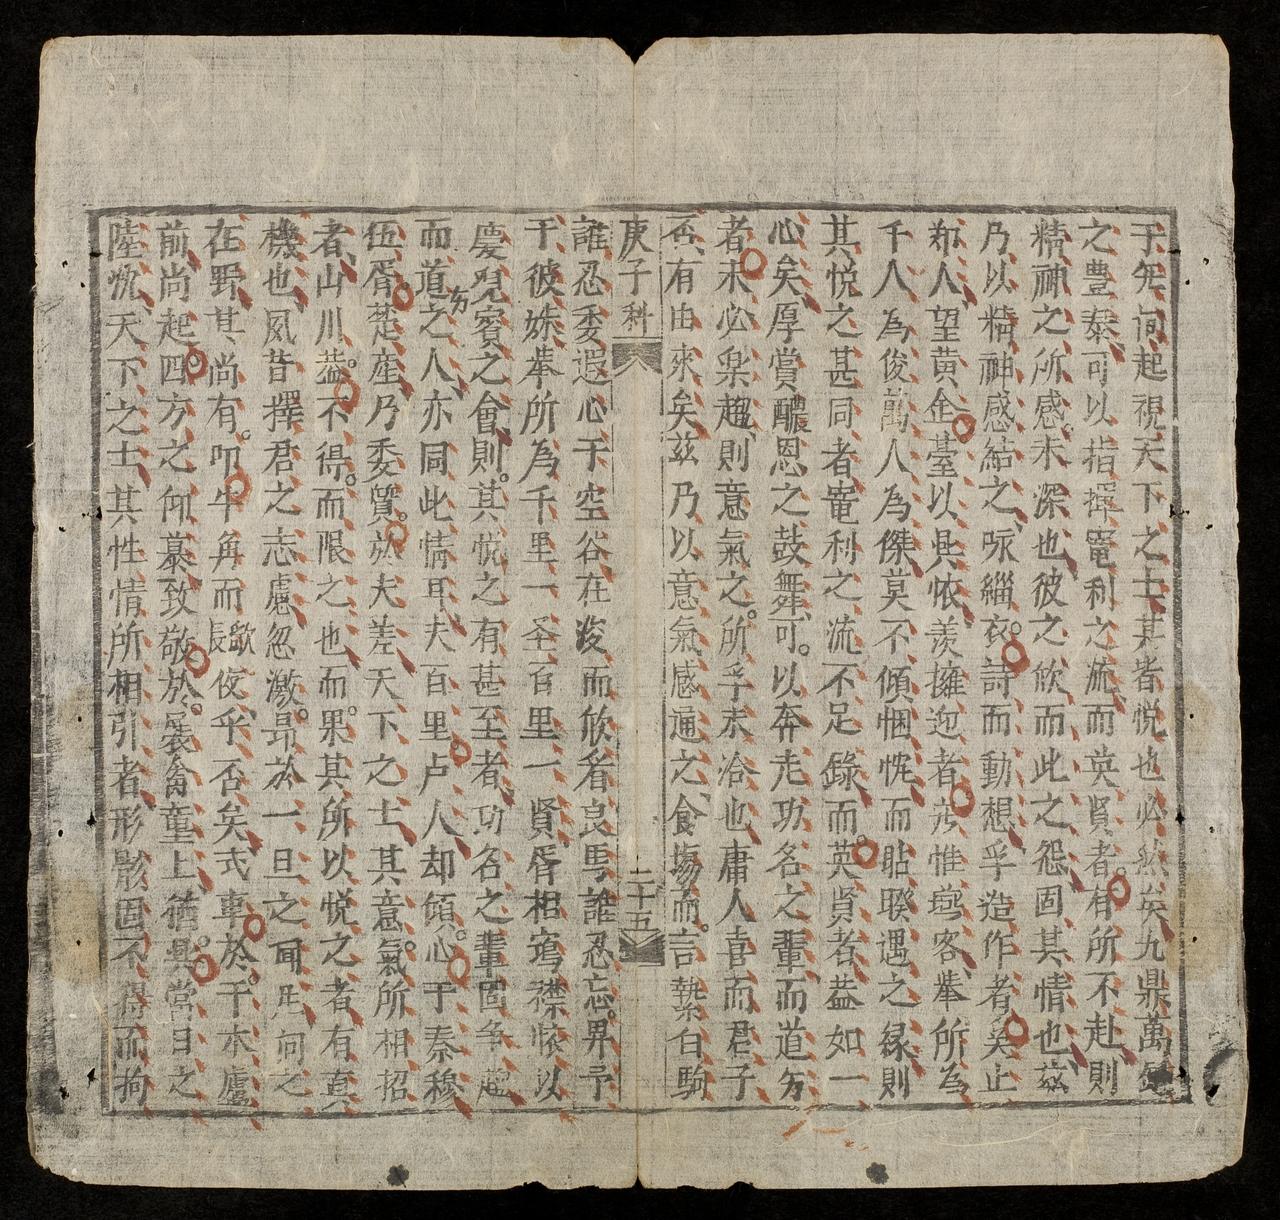 于矣何起視天下之士其者悅也必然矣九鼎萬鍾
之豊泰可以指揮寵利之流而英賢者有所不赴則
精神之所感未深也彼之欣而此之怨固其情也茲
乃以精神感結之咏緇衣詩而動想乎造作者奚止
鄰人望黄金臺以具依羨擁迎者兖惟燕客举所為
千人為俊萬人為傑莫不傾悃忱而貼睽遇之緣則
其悅之甚同者寵利之流不足錄而英賢者盖如一
心矣厚賞醲恩之鼓舞可以奔走功名之輩而道㐫
者未必楽趍則意氣之所孚未洽也庸人喜而君子
否有由來矣茲乃以意氣感通之食塲而言縶白駒
庚子科 二十五
誰忍委遐心于空谷在浚而欣看良馬誰忍忘畀予
于彼姝举所為千里一圣百里一賢胥相寫襟懷以
慶覌賓之會則其悅之有甚至者功名之輩固争趍
而道㐫之人亦同此情耳夫百里卢人却傾心于秦穆
伍胥楚産乃委質於夫差天下之士其意氣所相招
者山川葢不得而限之也而果其所以悅之者有真
機也夙昔擇君之志慮忽激昻於一旦之聞風向之
在野其尚有叩牛角而長歌夜乎否矣式車於干木廬
前尚起四方之仰慕致敬於曩翕童上猶興當日之
陸忱天下之士其性情所相引者形骸固不得而拘